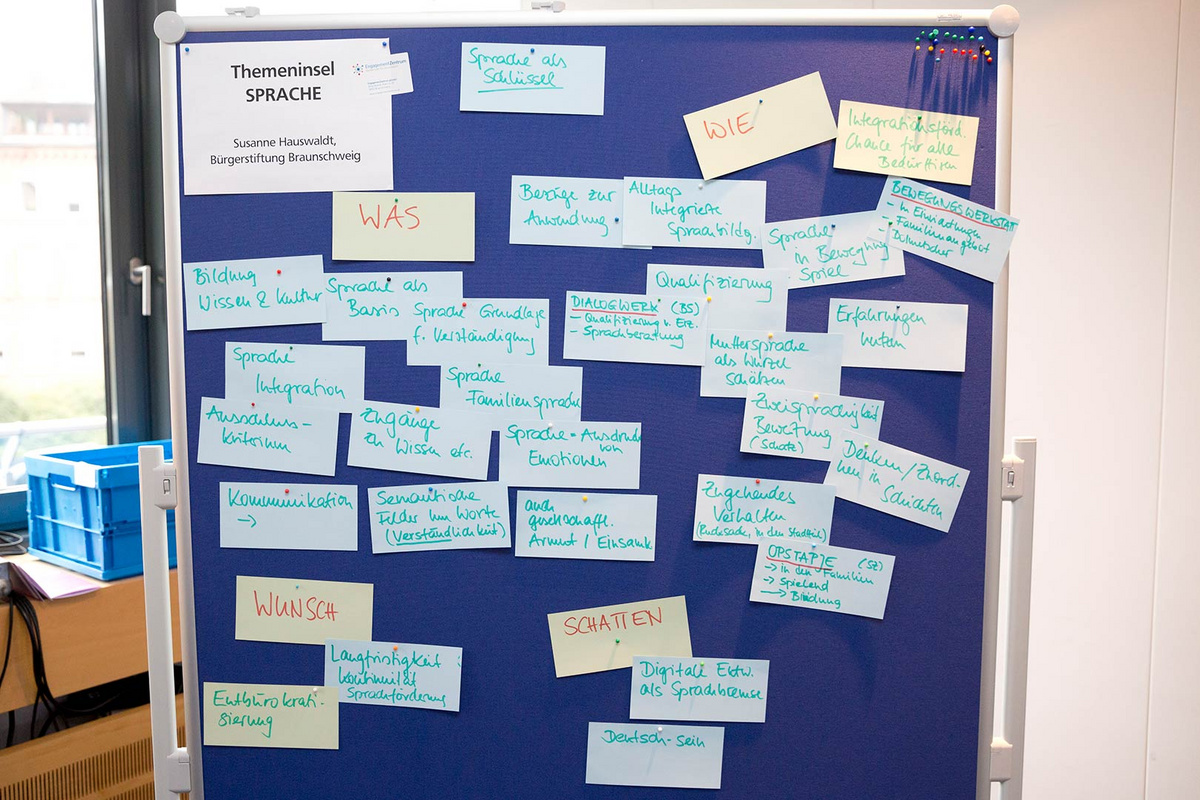 Themeninsel
SPRACHE
Susanne Hauswaldt,
Bürgerstiftung Braunschweig
EngagementZentrum
Sprache als
Schlüssel
WIE
Integrationsförd.
Chance für alle
WAS
Bezüge zur
Anwendung
Alltags
Integrierte
Sprachbildg.
Sprache
in Bewegung
Spiel
BEWEGUNGSWERKSTAT
- in Einrichtungen
- Familienangebot
- Dolmetscher
Bildung
Wissen & Kultur
Sprache als
Basis
Sprache Grundlage
f. Verständigung
Qualifizierung
DIALOGWERK (BS)
- Qualifizierung v. Erz.
- Sprachberatung
Erfahrungen
nutzen
Muttersprache
als Wurzel
schätzen
Sprache
Integration
Sprache
Familiensprache
Ausschluss-
kriterium
Zugänge
zu Wissen etc.
Sprache = Ausdruck
von
Emotionen
Zweisprachigkeit
Bewertung
(Schatz)
Denken/Zuord-
nen in
Schichten
Kommunikation
→
Semantische
Felder um Worte
(Verständlichkeit)
auch
gesellschaftl.
Armut / Einsamk.
Zugehendes
Verhalten
(Rucksack, in den Stadtteil)
OPSTAPJE (SZ)
→ in den Familien
→ Spielend
→ Bindung
WUNSCH
Langfristigkeit
Kontinuität
Sprachförderung
Entbürokrati-
sierung
SCHATTEN
Digitale Entw.
als Sprachbremse
Deutsch-sein